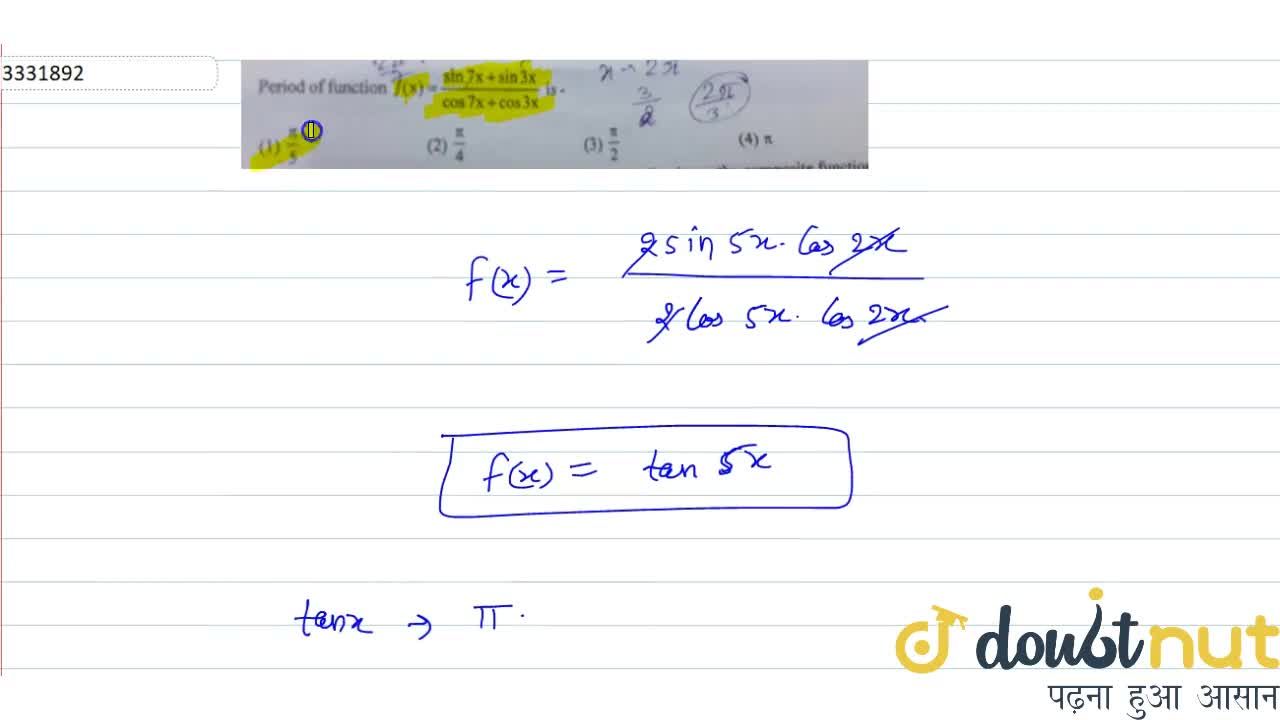 3331892
Period of function f(x) = (sin 7x + sin 3x)/(cos 7x + cos 3x) is -
x → 2π
3/2
2π/3
(1) π/5 (2) π/4 (3) π/2 (4) π
f(x) = (2 sin 5x. Cos 2x)/(2 Cos 5x. Cos 2x)
f(x) = tan 5x
tanx → π.
doubtnut
पढ़ना हुआ आसान